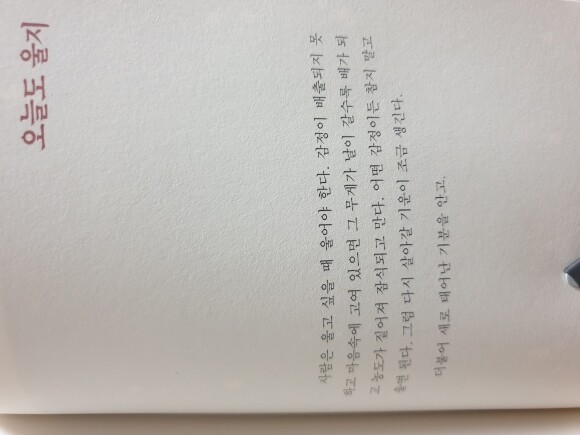 오늘도 울지
사람은 울고 싶을 때 울어야 한다. 감정이 배출되지 못
하고 마음속에 고여 있으면 그 무게가 날이 갈수록 배가 되
고 농도가 짙어져 잠식되고 만다. 어떤 감정이든 참지 말고
울면 된다. 그럼 다시 살아갈 기운이 조금 생긴다.
더불어 새로 태어난 기분을 안고.